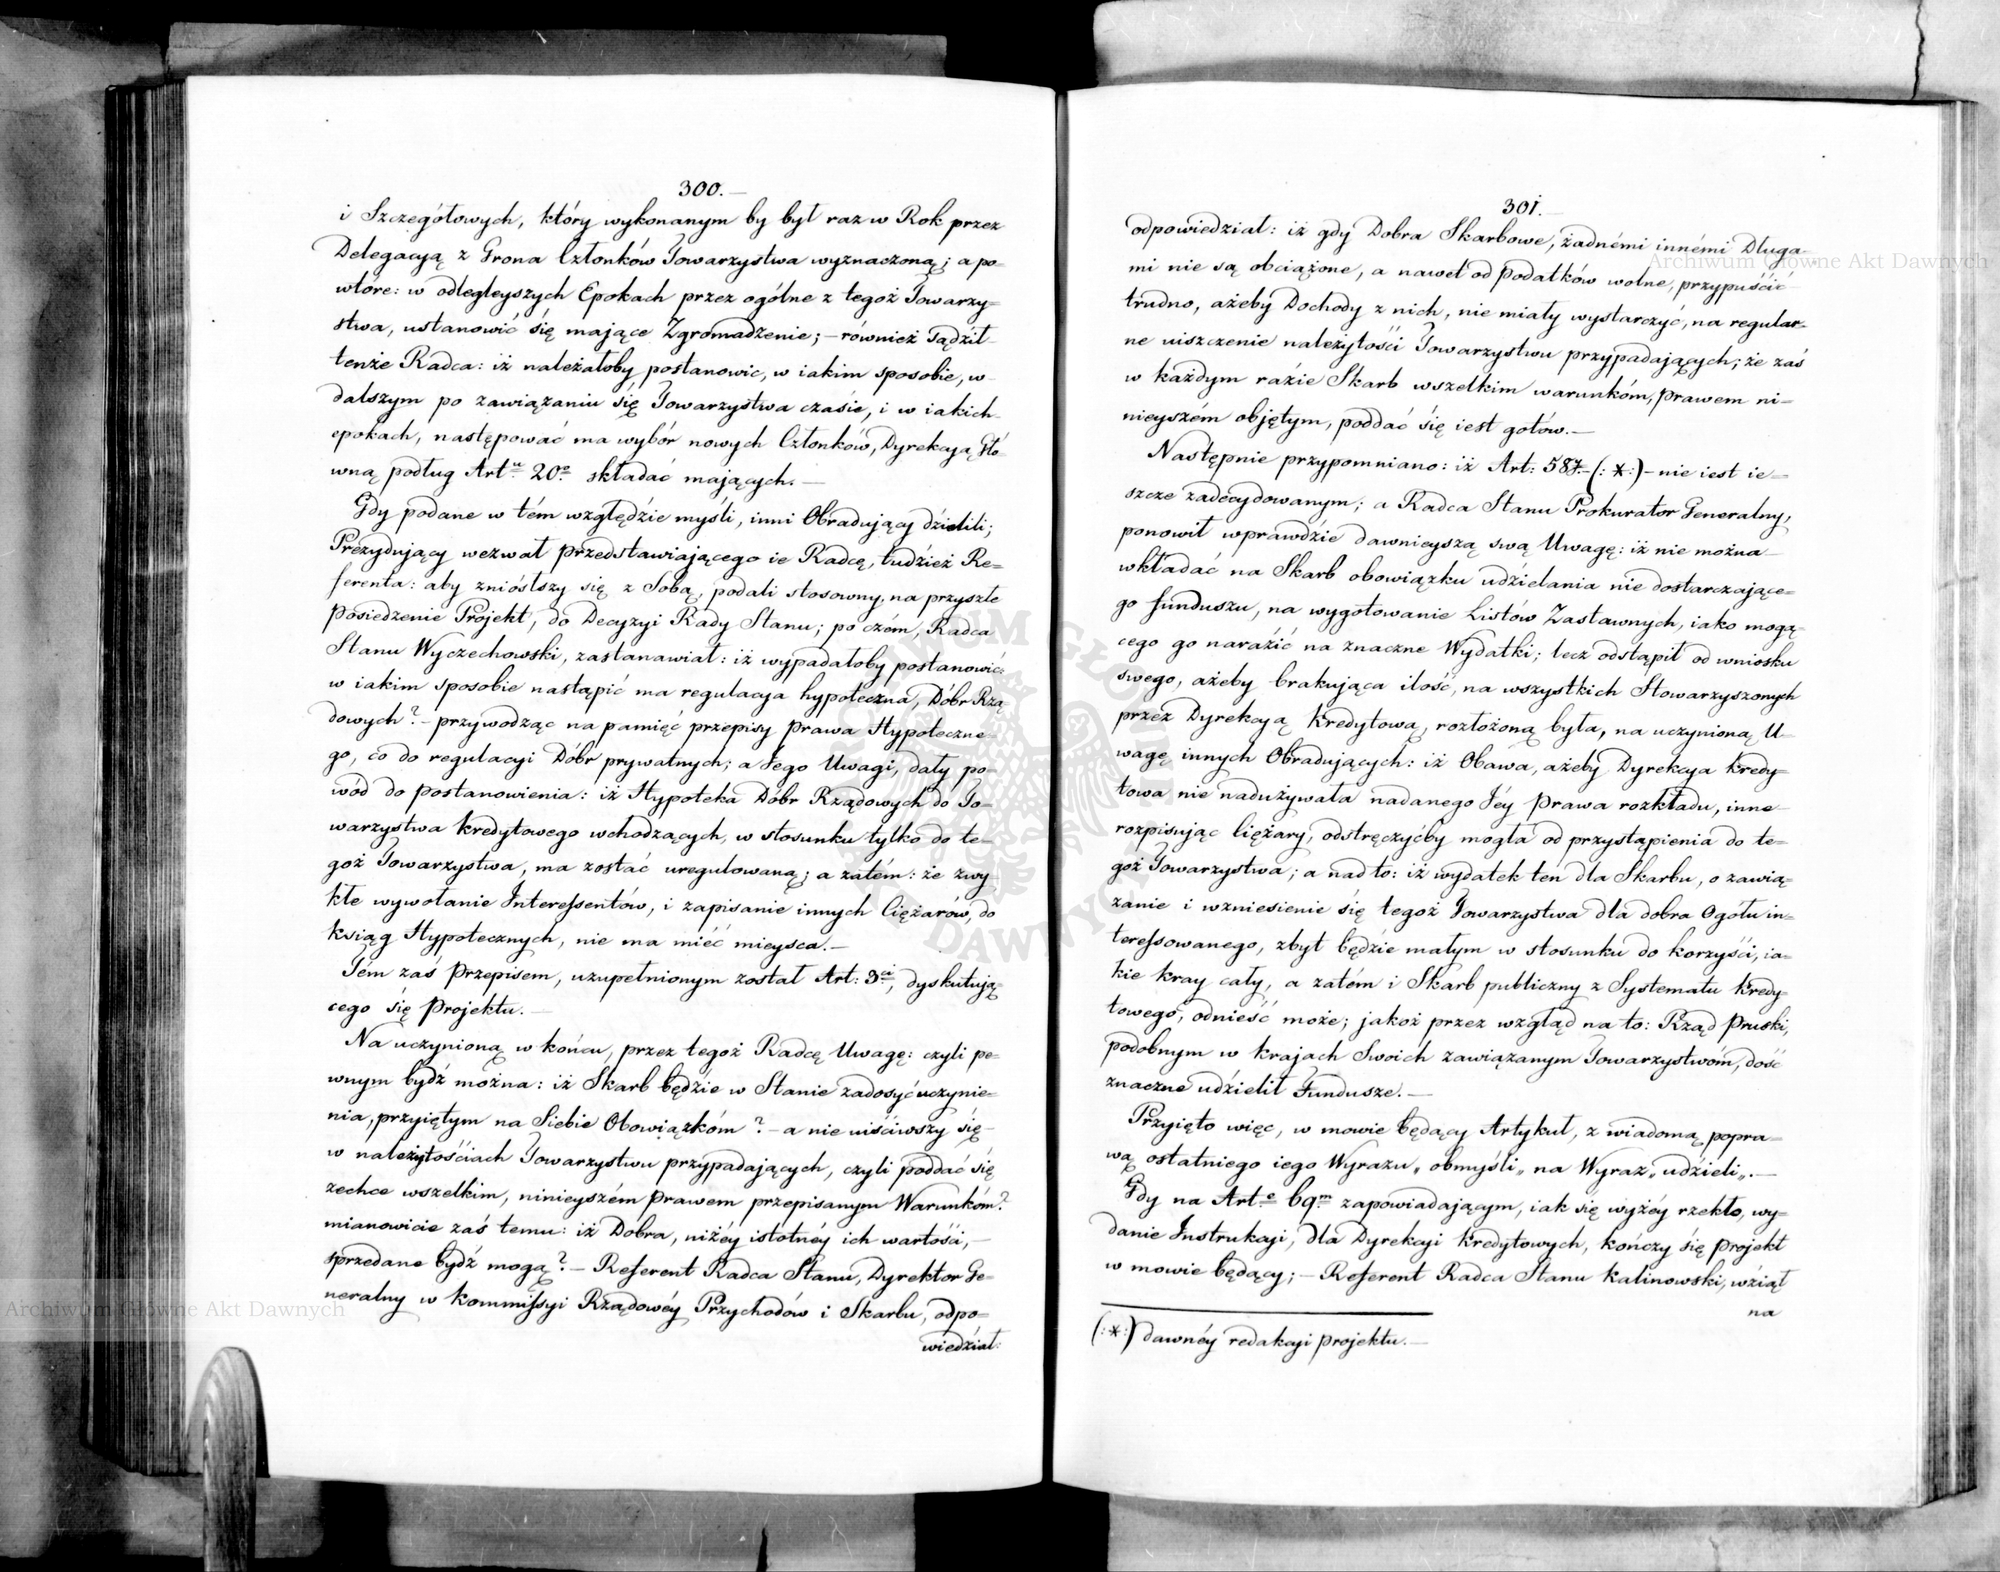 300.—
i Szczegółowych, który wykonanym by był raz w Rok przez
Delegacyą z Grona Członków Towarzystwa wyznaczoną; a po-
wtóre: w odlegleyszych Epokach przez ogólne z tegoż Towarzy-
stwa, ustanowić się maiące Zgromadzenie; — również sądził
tenże Radca: iż należałoby postanowic, w iakim sposobie, w
dalszym po zawiązaniu się Towarzystwa czasie, i w iakich
epokach, następować ma wybór nowych Członków, Dyrekcyą Głó-
wną podług Artu 20o składać maiących. —
Gdy podane w tém względzie myśli, inni Obraduiący dzielili;
Prezyduiący wezwał przedstawiaiącego ie Radcę, tudzież Re-
ferenta: aby zniósłszy się z Sobą, podali stosowny, na przyszłe
Posiedzenie Projekt, do Decyzyi Rady Stanu; po czém, Radca
Stanu Wyczechowski, zastanawiał: iż wypadałoby postanowić:
w iakim sposobie nastąpić ma regulacya hypoteczna, Dóbr Rzą-
dowych? — przywodząc na pamięć przepisy Prawa Hypoteczne-
go, co do regulacyi Dóbr prywatnych; a Jego Uwagi, dały po-
wód do postanowienia: iż Hypoteka Dóbr Rządowych do To-
warzystwa Kredytowego wchodzących, w stosunku tylko do te-
goż Towarzystwa, ma zostać uregulowaną; a zatém: że zwy-
kłe wywołanie Interessentów, i zapisanie innych Ciężarów, do
ksiąg Hypotecznych, nie ma mieć mieysca. —
Tém zaś Przepisem, uzupełnionym został Art: 3ci, dyskutuią-
cego się Projektu. —
Na uczynioną w końcu, przez tegoż Radcę Uwagę: czyli pe-
wnym bydź można: iż Skarb będzie w Stanie zadosyć uczynie-
nia, przyiętym na Siebie Obowiązkóm? — a nie uiściwszy się
w należytościach Towarzystwu przypadaiących, czyli poddać się
zechce wszelkim, ninieyszém Prawem przepisanym Warunkóm?
mianowicie zaś temu: iż Dobra, niżéy istotnéy ich wartości, —
sprzedane bydź mogą? — Referent Radca Stanu, Dyrektor Ge-
neralny w Kommissyi Rządowéy Przychodów i Skarbu, odpo-
wiedział:
301.
odpowiedział: iż gdy Dobra Skarbowe, żadnémi innémi Długa-
mi nie są obciążone, a nawet od podatków wolne, przypuścić
trudno, ażeby Dochody z nich, nie miały wystarczyć, na regular-
ne uiszczenie należytości Towarzystwu przypadaiących; że zaś
w każdym razie Skarb wszelkim warunkóm, Prawem ni-
nieyszém obiętym, poddać się iest gotów. —
Następnie przypomniano: iż Art: 587. — (:*:) — nie iest ie-
szcze zadecydowanym; a Radca Stanu Prokurator Generalny,
ponowił wprawdzie dawnieyszą swą Uwagę: iż nie można
wkładać na Skarb obowiązku udzielania nie dostarczaiące-
go funduszu, na wygotowanie Listów Zastawnych, iako mogą-
cego go narazić na znaczne Wydatki; lecz odstąpił od wniosku
swego, ażeby brakuiąca ilość, na wszystkich Stowarzyszonych
przez Dyrekcyą Kredytową, rozłożoną była, na uczynioną U-
wagę innych Obraduiących: iż Obawa, ażeby Dyrekcya Kredy-
towa nie nadużywała nadanego Jéy Prawa rozkładu, inne
rozpisuiąc Ciężary, odstręczyćby mogła od przystąpienia do te-
goż Towarzystwa; a nad to: iż wydatek ten dla Skarbu, o zawią-
zanie i wzniesienie się tegoż Towarzystwa dla dobra Ogółu in-
teressowanego, zbyt będzie małym w stosunku do korzyści, ia-
kie kray cały, a zatém i Skarb publiczny z Systematu Kredy-
towego, odnieść może; jakoż przez wzgląd na to: Rząd Pruski,
podobnym w krajach Swoich zawiązanym Towarzystwóm, dość
znaczne udzielił Fundusze. —
Przyięto więc, w mowie będący Artykuł, z wiadomą popra-
wą ostatniego iego Wyrazu „obmyśli„ na Wyraz „udzieli„. —
Gdy na Arte 69m zapowiadaiącym, iak się wyżéy rzekło, wy-
danie Instrukcyi, dla Dyrekcyi Kredytowych, kończy się Projekt
w mowie będący; — Referent Radca Stanu Kalinowski, wziął
na
(:*:) dawnéy redakcyi projektu. —
Archiwum Główne Akt Dawnych
Archiwum Główne Akt Dawnych
ARCHIWUM GŁÓWNE AKT DAWNYCH